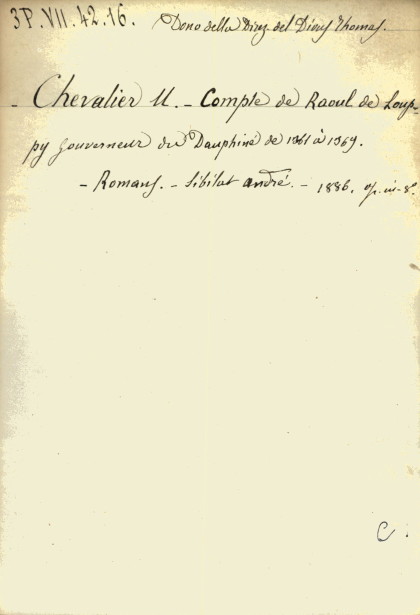 3P.VII.42.16. Dono della Direz. del Dieus Thomas.
- Chevalier U. - Compte de Raoul de Loup-
py Gouverneur du Dauphiné de 1361 à 1369.
- Romans. - Sibilat André. - 1886. op. in-8.
C.